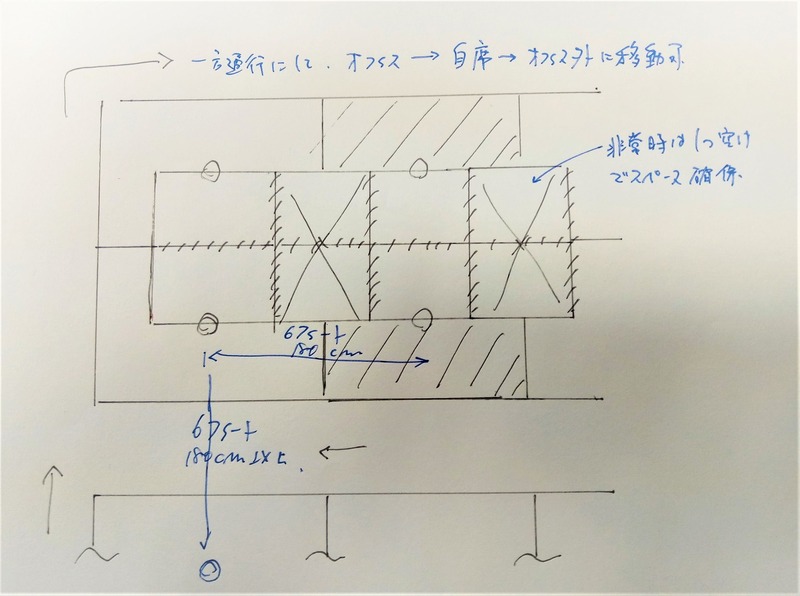 一方通行にして、オフィス → 自席 → オフィス外に移動可
非常時は1つ空け
でスペース確保
6フィート
180cm
6フィート
180cm以上.